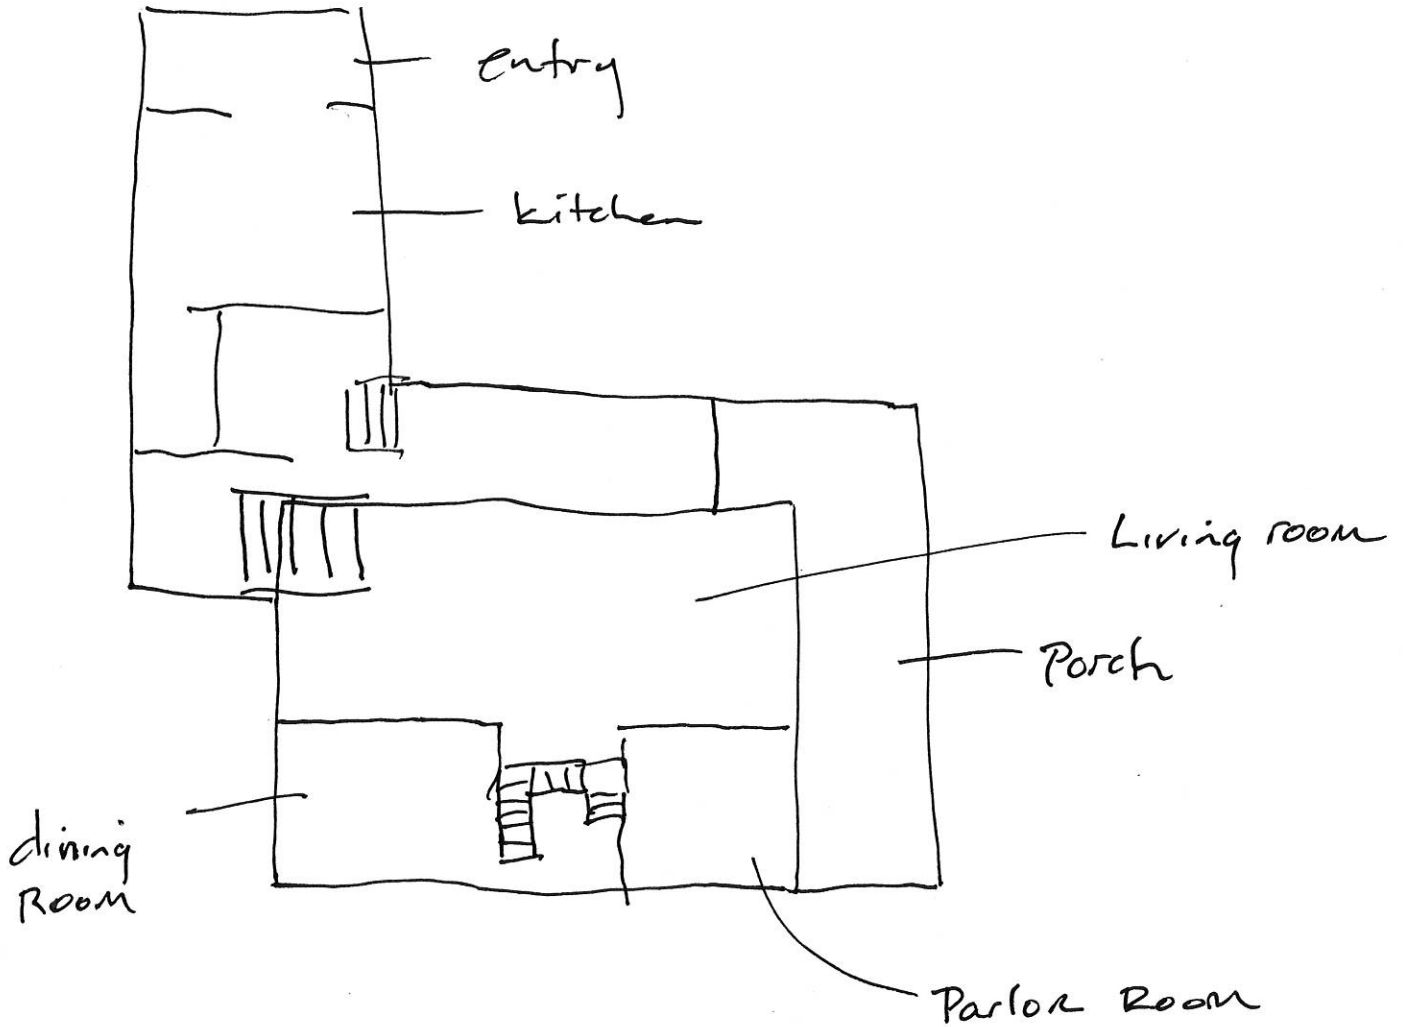 entry
kitchen
Living room
Porch
dining
Room
Parlor Room